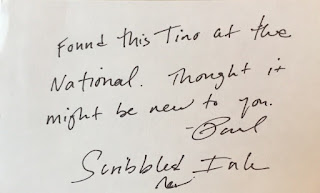 Found this Tino at the
National. Thought it
might be new to you.
-Paul
Scribbled Ink